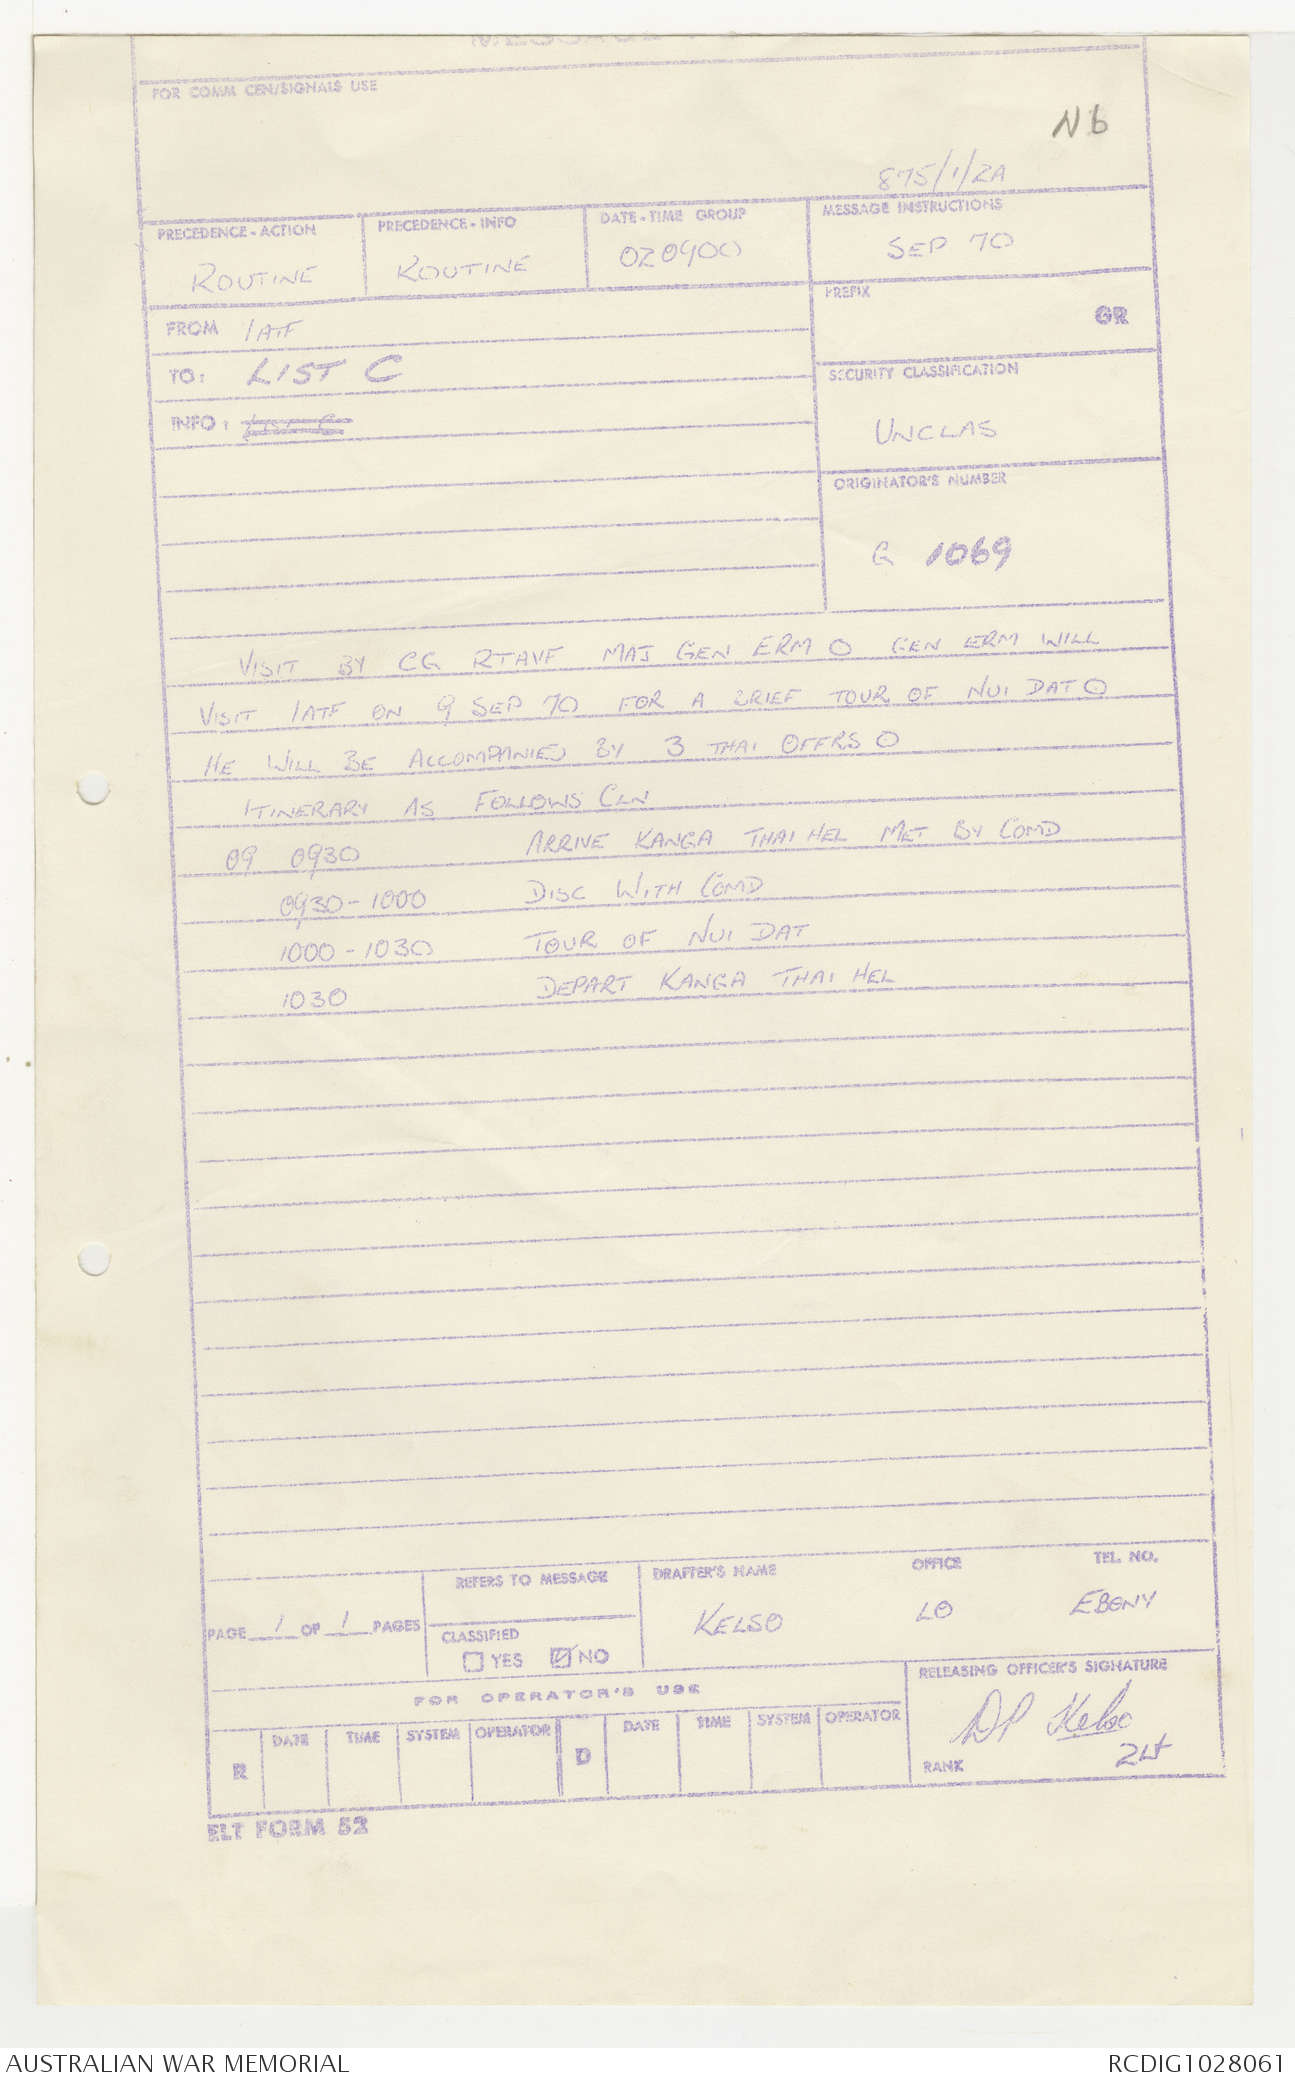 FOR COMM CEN/SIGNALS USE
N 6
875/1/2A
PRECEDENCE - ACTION
ROUTINE
PRECEDENCE - INFO
ROUTINE
DATE - TIME GROUP
020900
MESSAGE INSTRUCTIONS
SEP 70
PREFIX
GR
FROM 1ATF
TO: LIST C
INFO: LIST C
SECURITY CLASSIFICATION
UNCLAS
ORIGINATOR'S NUMBER
G 1069
VISIT BY CG RTAVF MAJ GEN ERM O GEN ERM WILL
VISIT 1ATF ON 9 SEP 70 FOR A BRIEF TOUR OF NUI DAT O
HE WILL BE ACCOMPANIED BY 3 THAI OFFRS O
ITINERARY AS FOLLOWS CLN
09 0930 ARRIVE KANGA THAI HEL MET BY COMD
0930-1000 DISC WITH COMD
1000-1030 TOUR OF NUI DAT
1030 DEPART KANGA THAI HEL
PAGE 1 OF 1 PAGES
REFERS TO MESSAGE
CLASSIFIED
YES NO
DRAFTER'S NAME
KELSO
OFFICE
LO
TEL. NO.
EBONY
FOR OPERATOR'S USE
R DATE TIME SYSTEM OPERATOR D DATE TIME SYSTEM OPERATOR
RELEASING OFFICER'S SIGNATURE
DP Kelso
RANK 2Lt
ELT FORM 52
AUSTRALIAN WAR MEMORIAL
RCDIG1028061